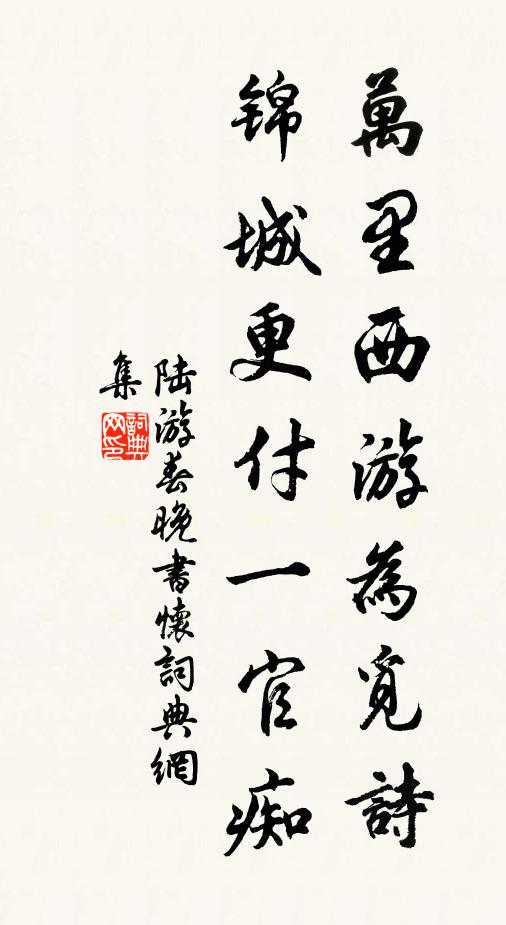 萬里西游為覓詩
锦城更付一官痴
陆游春晚書懷詞典網
集
詞典网印